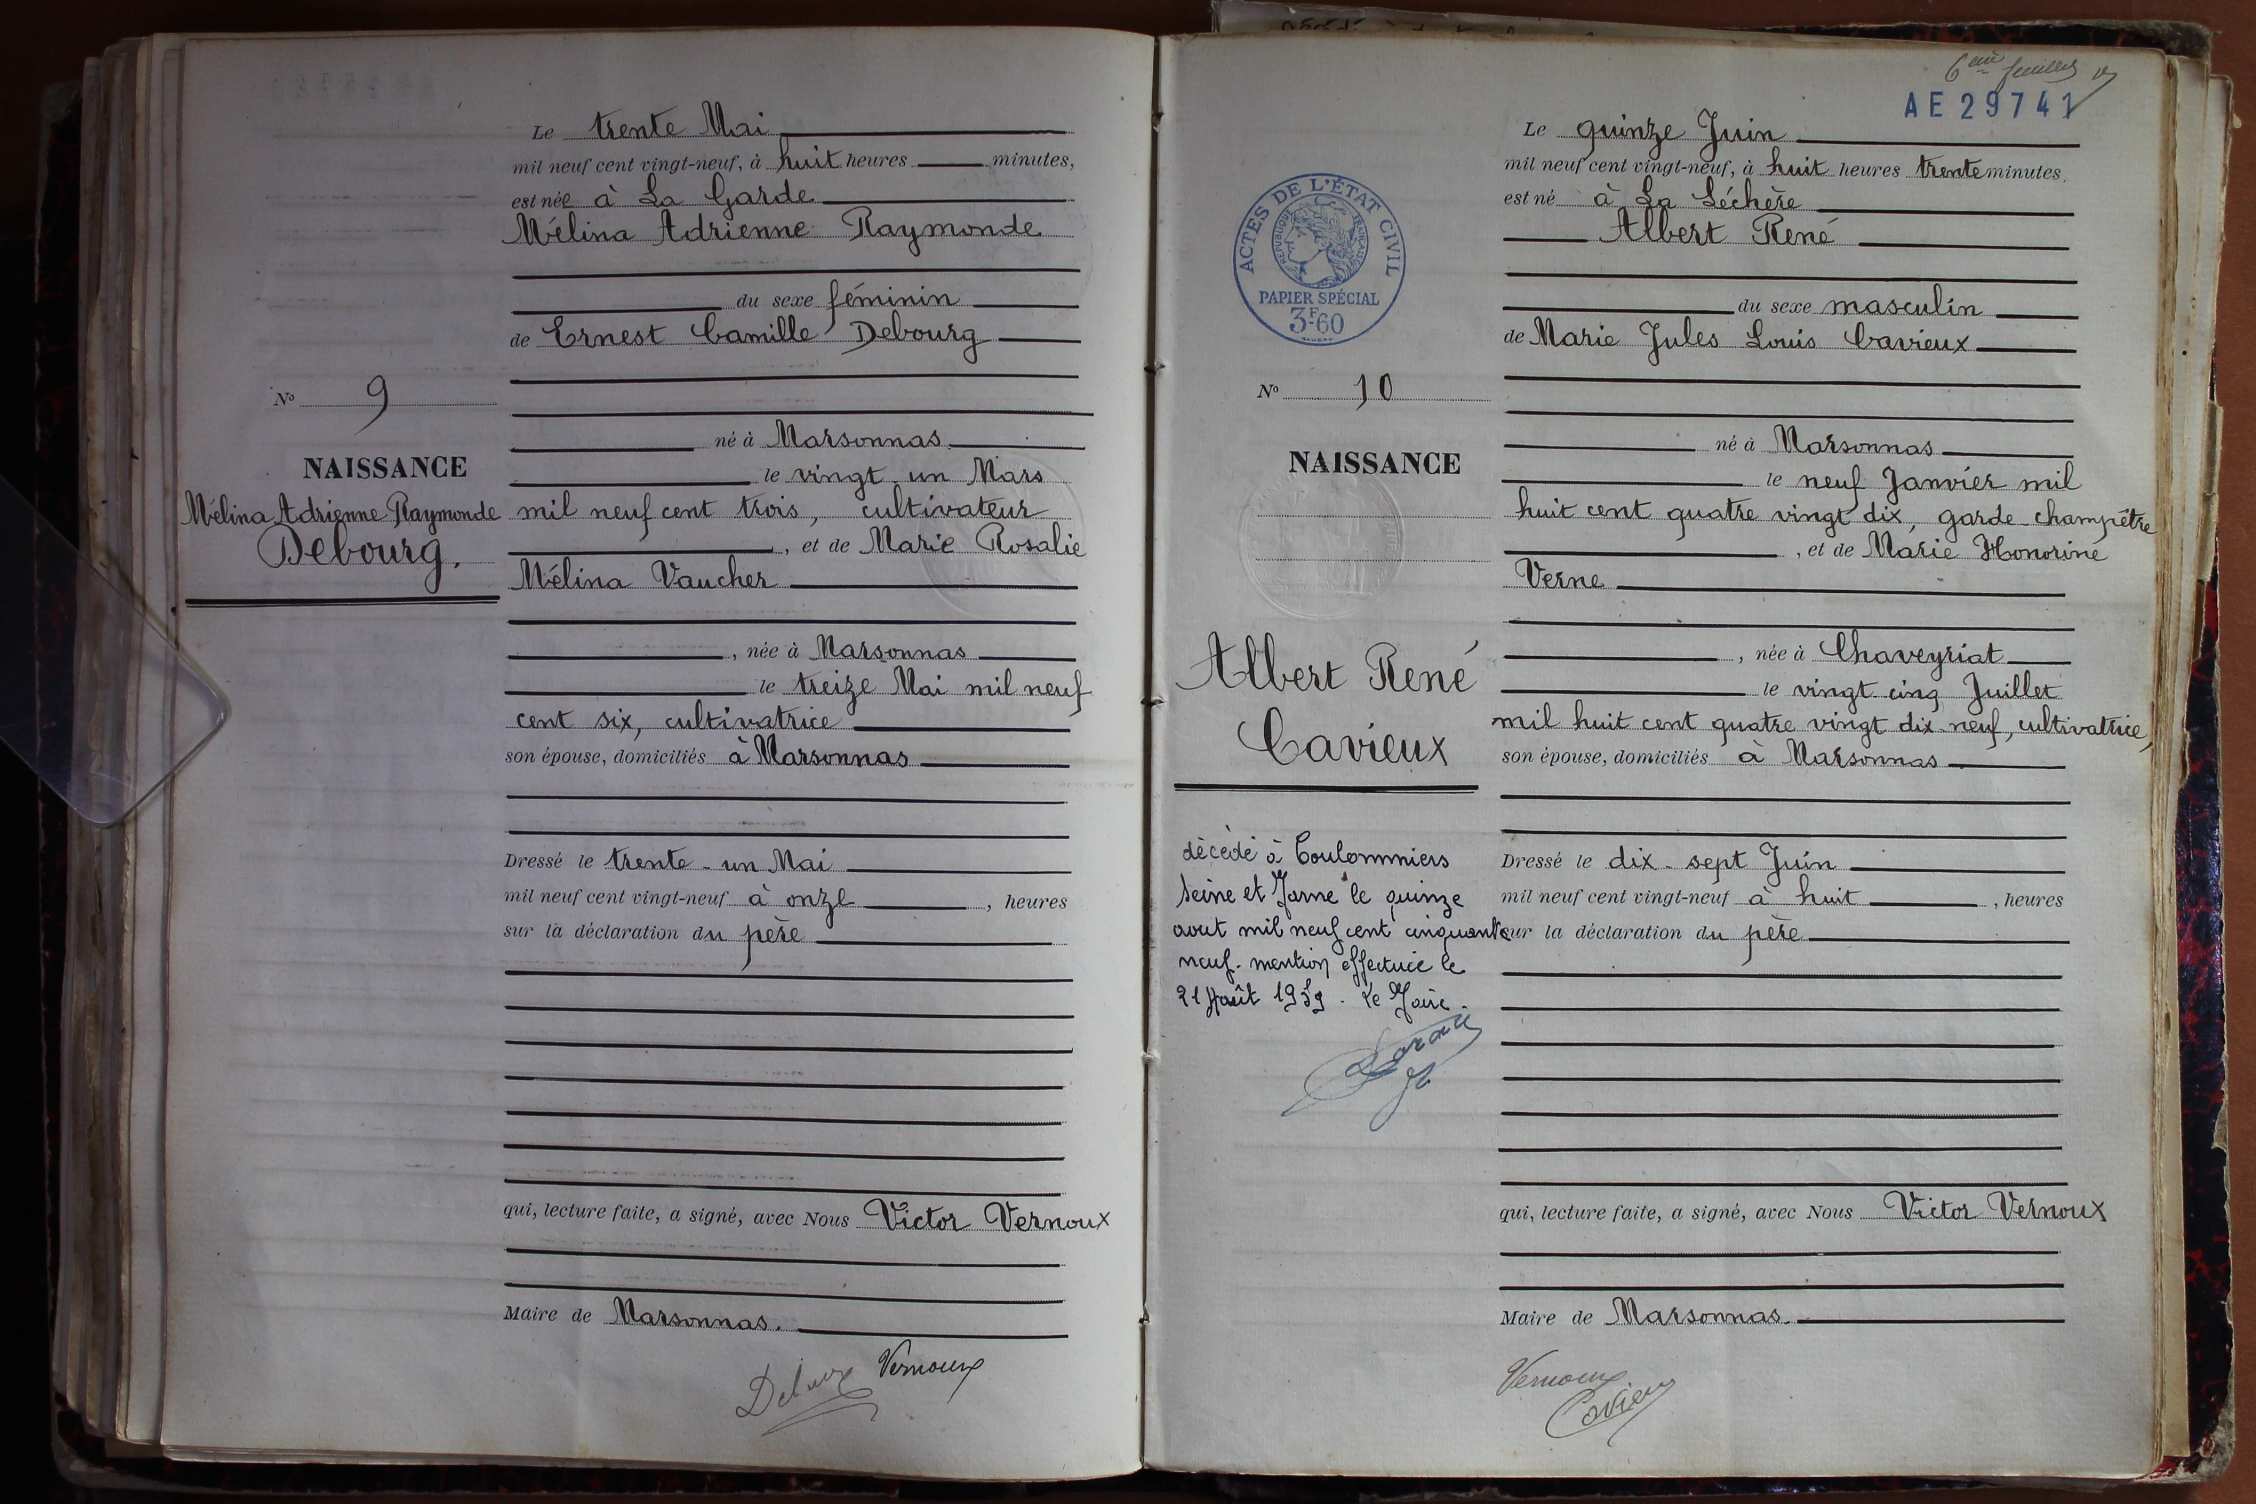 Le trente Mai
mil neuf cent vingt-neuf, à huit heures minutes,
est née à La Garde
Mélina Adrienne Raymonde
du sexe féminin
de Ernest Camille Debourg
No 9
né à Marsonnas
NAISSANCE
le vingt un Mars
Mélina Adrienne Raymonde
Debourg.
mil neuf cent trois, cultivateur
, et de Marie Rosalie
Mélina Vaucher
, née à Marsonnas
le treize Mai mil neuf
cent six, cultivatrice
son épouse, domiciliés à Marsonnas
Dressé le trente-un Mai
mil neuf cent vingt-neuf à onze , heures
sur la déclaration du père
qui, lecture faite, a signé, avec Nous Victor Vernoux
Maire de Marsonnas.
Vernoux
6eme feuillet
AE 29741
Le quinze Juin
mil neuf cent vingt-neuf, à huit heures trente minutes,
est né à La Léchère
Albert René
du sexe masculin
de Marie Jules Louis Cavieux
ACTES DE L'ÉTAT CIVIL
RÉPUBLIQUE FRANÇAISE
PAPIER SPÉCIAL
3F60
No 10
né à Marsonnas
NAISSANCE
le neuf Janvier mil
huit cent quatre vingt dix, garde-champêtre
, et de Marie Honorine
Verne
Albert René
Cavieux
, née à Chaveyriat
le vingt cinq Juillet
mil huit cent quatre vingt dix-neuf, cultivatrice,
son épouse, domiciliés à Marsonnas
décédé à Coulommiers
Seine et Marne le quinze
aout mil neuf cent cinquante
neuf. mention effectuée le
21 Août 1959. Le Maire.
Dressé le dix-sept Juin
mil neuf cent vingt-neuf à huit , heures
sur la déclaration du père
qui, lecture faite, a signé, avec Nous Victor Vernoux
Maire de Marsonnas.
Vernoux
Cavieux